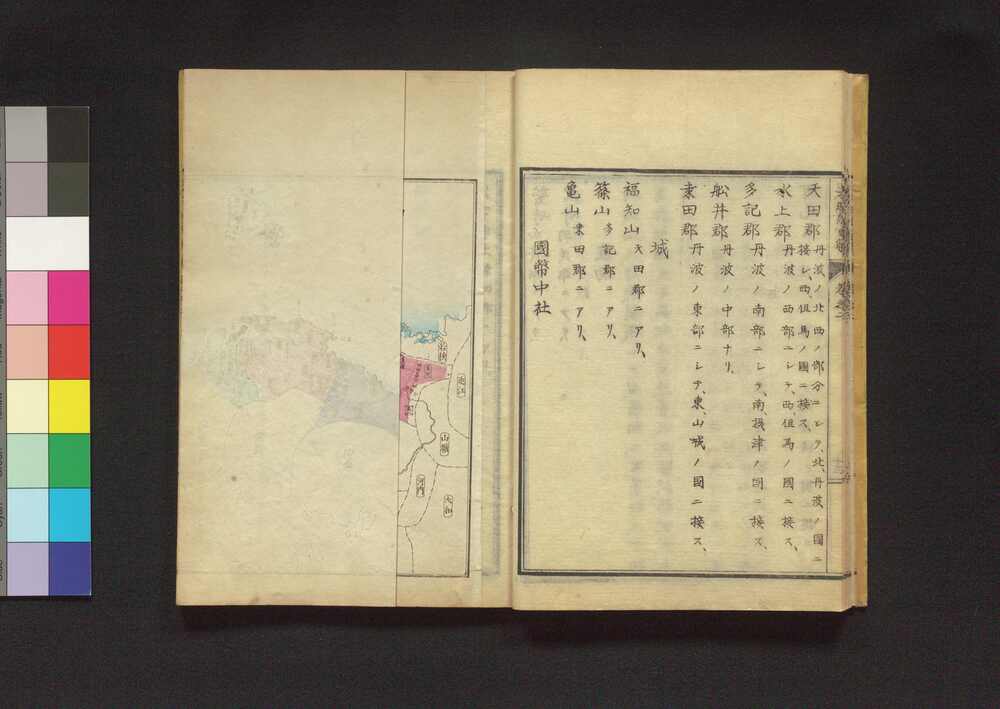 天田郡 丹波ノ北西ノ部分ニシテ、北、丹波ノ國ニ
接シ、西、但馬ノ國ニ接ス、
氷上郡 丹波ノ西部ニシテ、西、但馬ノ國ニ接ス、
多記郡 丹波ノ南部ニシテ、南、摂津ノ國ニ接ス、
舩井郡 丹波ノ中部ナリ、
桒田郡 丹波ノ東部ニシテ、東、山城ノ國ニ接ス、
城
福知山 天田郡ニアリ、
篠山 多記郡ニアリ、
亀山 桒田郡ニアリ、
國幣中社
若狭
近江
山城
河内
大和